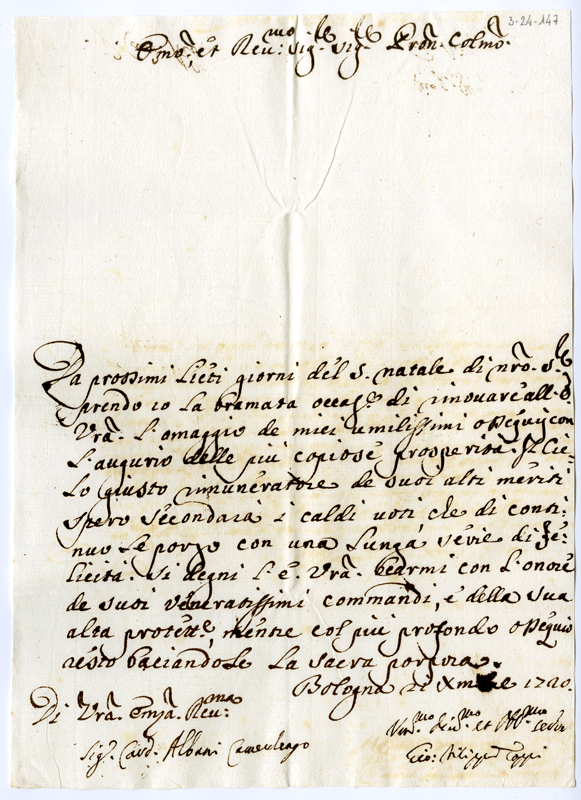 3-24-147
Emo, et Reu:mo Sig.re Sig.re Pron. Colmo.
Da prossimi lieti giorni del S. natale di nro. S.re
prendo io la bramata occas.e di rinouare all. E.
Vra. l'omaggio de miei umilissimi ossequij con
l'augurio delle più copiose prosperità. Il Cie-
lo giusto rimuneratore de suoi alti meriti
spero seconderà i caldi uoti che di conti-
nuo le porgo con una lunga serie di fe-
licità. Si degni l'E. Vra. bearmi con l'onore
de suoi veneratissimi commandi, e della sua
alta protett.e, mentre col più profondo ossequio
resto baciandole la sacra porpora.
Bologna 21 Xmbre 1720.
Di Vra. Emza. Reu:ma
Um.mo Deu.mo et Obb.mo
Sig.r Card. Albani Camerlengo
Gio: Filippo